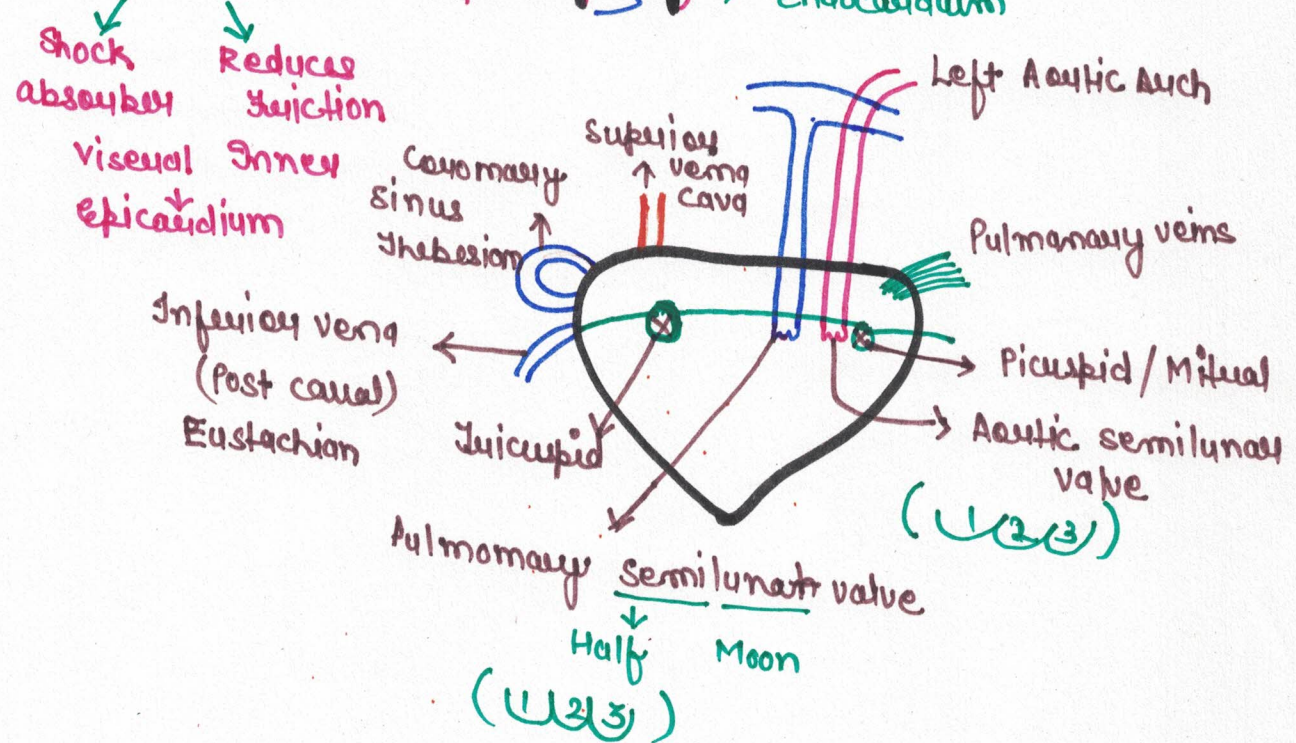 Endocardium
Shock
absorber
Reduces
friction
Viseral Inner
Epicardium
Coronary
sinus
Thebesian
Superior
vena
cava
Left Aortic Arch
Pulmonary veins
Inferior vena
(Post caval)
Eustachian
Tricuspid
Picuspid / Mitral
Aortic semilunar
valve
(1 2 3)
Pulmonary semilunar valve
Half Moon
(1 2 3)